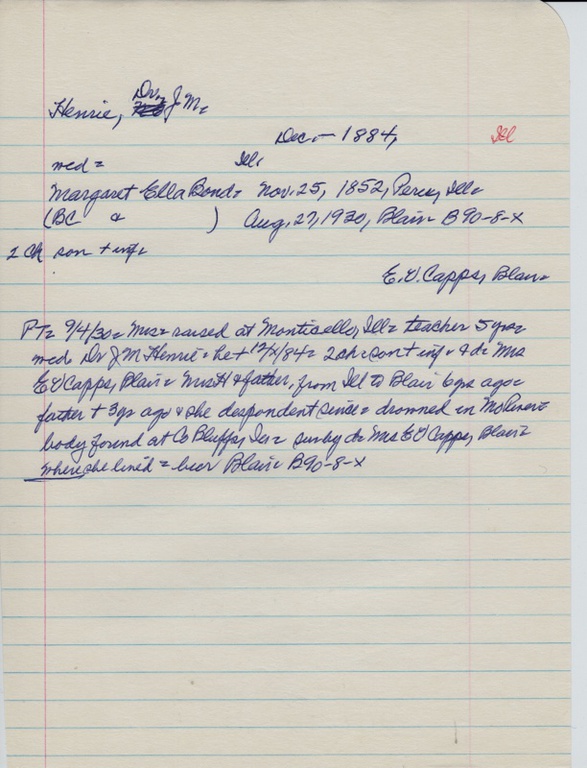 Dr.
Henrie, J M.
Dec. – 1884, Ill
med = Ill.
Margaret Ella Bond = Nov. 25, 1852, Percy, Ill =
(BC & ) Aug. 27, 1930, Blair = B90-8-X
2 Ch son + inf =
E. V. Capps, Blair =
PT = 9/4/30 = Mrs = raised at Monticello, Ill = teacher 5 yrs =
med. Dr J M Henrie = he + 12/X/84 = 2 ch = son + inf + & d = Mrs
E V Capps, Blair = Mrs H & father, from Ill to Blair 6 yrs ago =
father + 3 yr ago & she despondent since = drowned in Mo River =
body found at Co Bluffs, Ia = sur by d = Mrs E V Capps, Blair =
where she lived = bur Blair = B90-8-X